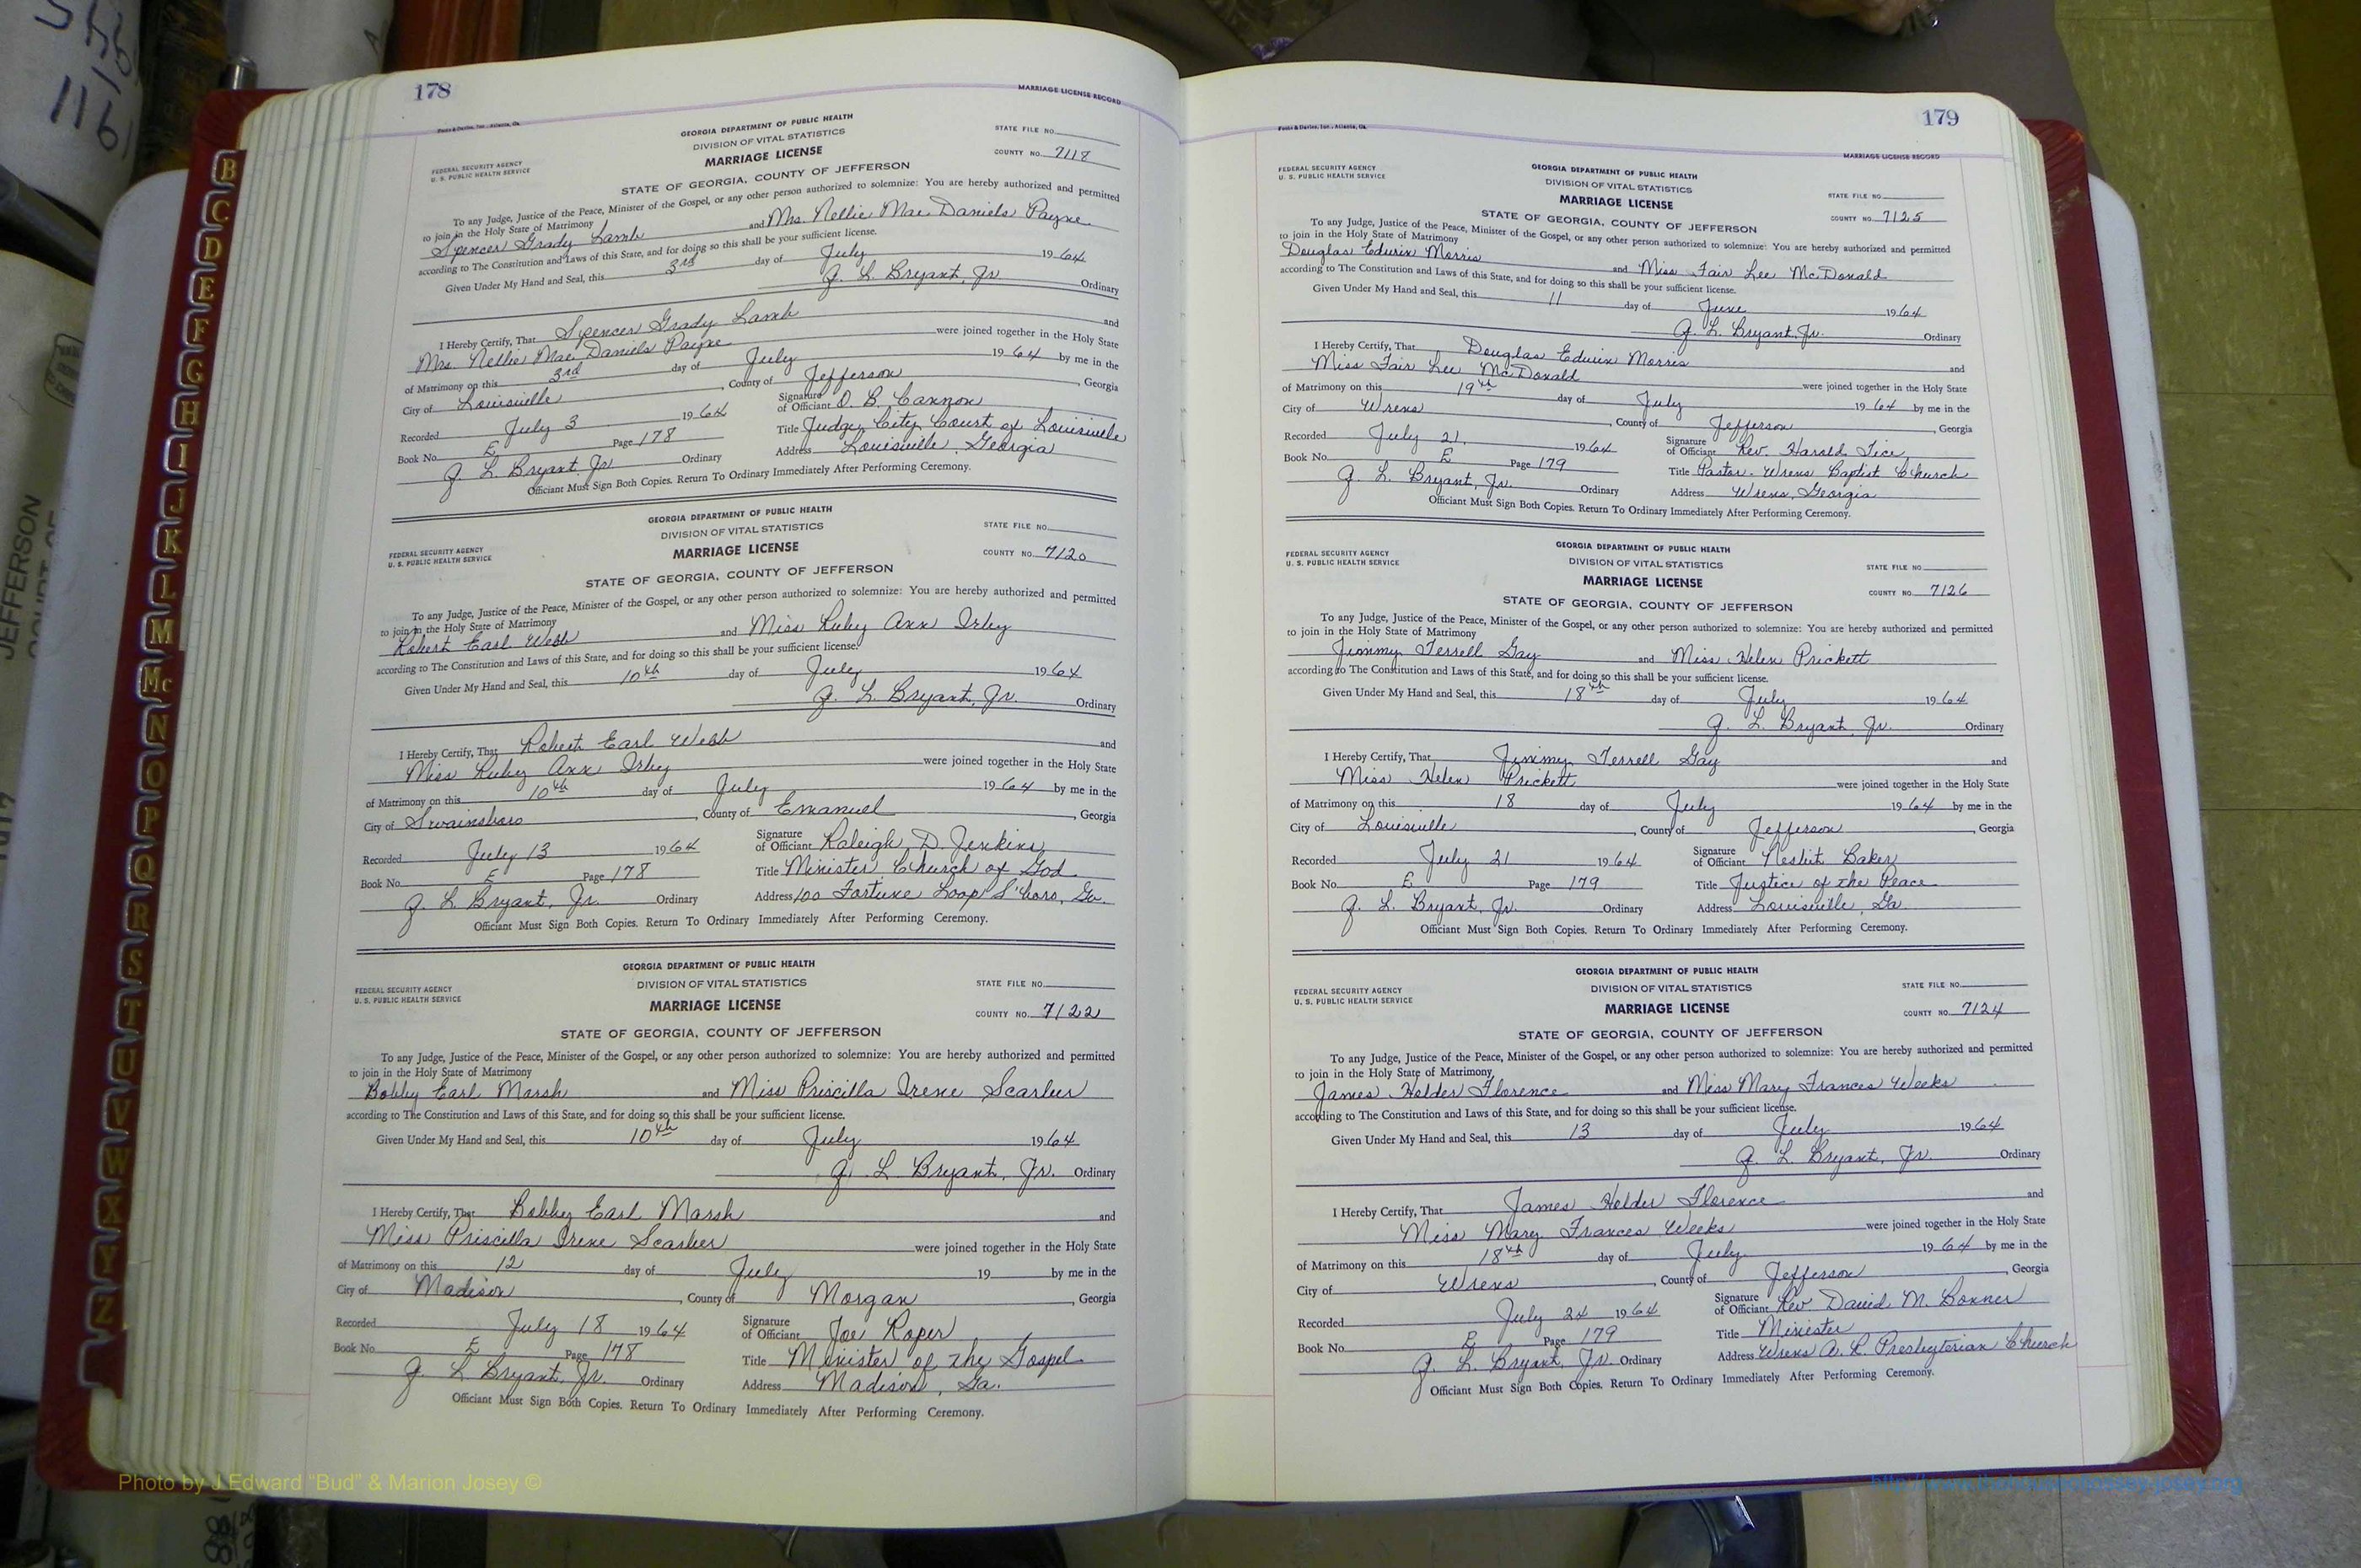 178
MARRIAGE LICENSE RECORD
Foote & Davies, Inc., Atlanta, Ga.
GEORGIA DEPARTMENT OF PUBLIC HEALTH
DIVISION OF VITAL STATISTICS
STATE FILE NO.
FEDERAL SECURITY AGENCY
U. S. PUBLIC HEALTH SERVICE
MARRIAGE LICENSE
COUNTY NO. 7118
STATE OF GEORGIA, COUNTY OF JEFFERSON
To any Judge, Justice of the Peace, Minister of the Gospel, or any other person authorized to solemnize: You are hereby authorized and permitted
to join in the Holy State of Matrimony
Spencer Grady Lamb and Mrs. Nellie Mae Daniels Payne
according to The Constitution and Laws of this State, and for doing so this shall be your sufficient license.
Given Under My Hand and Seal, this 3rd day of July 1964
Q. L. Bryant, Jr. Ordinary
I Hereby Certify, That Spencer Grady Lamb and
Mrs. Nellie Mae Daniels Payne were joined together in the Holy State
of Matrimony on this 3rd day of July 1964 by me in the
City of Louisville, County of Jefferson, Georgia
Recorded July 3 1964 Signature of Officiant O. B. Cannon
Book No. E Page 178 Title Judge, City Court of Louisville
Q. L. Bryant, Jr. Ordinary Address Louisville, Georgia
Officiant Must Sign Both Copies. Return To Ordinary Immediately After Performing Ceremony.
GEORGIA DEPARTMENT OF PUBLIC HEALTH
DIVISION OF VITAL STATISTICS
STATE FILE NO.
FEDERAL SECURITY AGENCY
U. S. PUBLIC HEALTH SERVICE
MARRIAGE LICENSE
COUNTY NO. 7120
STATE OF GEORGIA, COUNTY OF JEFFERSON
To any Judge, Justice of the Peace, Minister of the Gospel, or any other person authorized to solemnize: You are hereby authorized and permitted
to join in the Holy State of Matrimony
Robert Earl Webb and Miss Ruby Ann Irby
according to The Constitution and Laws of this State, and for doing so this shall be your sufficient license.
Given Under My Hand and Seal, this 10th day of July 1964
Q. L. Bryant, Jr. Ordinary
I Hereby Certify, That Robert Earl Webb and
Miss Ruby Ann Irby were joined together in the Holy State
of Matrimony on this 10th day of July 1964 by me in the
City of Swainsboro, County of Emanuel, Georgia
Recorded July 13 1964 Signature of Officiant Raleigh D. Jenkins
Book No. E Page 178 Title Minister, Church of God
Q. L. Bryant, Jr. Ordinary Address 100 Fortune Loop S'boro, Ga.
Officiant Must Sign Both Copies. Return To Ordinary Immediately After Performing Ceremony.
GEORGIA DEPARTMENT OF PUBLIC HEALTH
DIVISION OF VITAL STATISTICS
STATE FILE NO.
FEDERAL SECURITY AGENCY
U. S. PUBLIC HEALTH SERVICE
MARRIAGE LICENSE
COUNTY NO. 7122
STATE OF GEORGIA, COUNTY OF JEFFERSON
To any Judge, Justice of the Peace, Minister of the Gospel, or any other person authorized to solemnize: You are hereby authorized and permitted
to join in the Holy State of Matrimony
Bobby Earl Marsh and Miss Priscilla Irene Scarber
according to The Constitution and Laws of this State, and for doing so this shall be your sufficient license.
Given Under My Hand and Seal, this 10th day of July 1964
Q. L. Bryant, Jr. Ordinary
I Hereby Certify, That Bobby Earl Marsh and
Miss Priscilla Irene Scarber were joined together in the Holy State
of Matrimony on this 12 day of July 19 by me in the
City of Madison, County of Morgan, Georgia
Recorded July 18 1964 Signature of Officiant Joe Roper
Book No. E Page 178 Title Minister of the Gospel
Q. L. Bryant, Jr. Ordinary Address Madison, Ga.
Officiant Must Sign Both Copies. Return To Ordinary Immediately After Performing Ceremony.
179
Foote & Davies, Inc., Atlanta, Ga.
MARRIAGE LICENSE RECORD
FEDERAL SECURITY AGENCY
U. S. PUBLIC HEALTH SERVICE
GEORGIA DEPARTMENT OF PUBLIC HEALTH
DIVISION OF VITAL STATISTICS
STATE FILE NO.
MARRIAGE LICENSE
COUNTY NO. 7125
STATE OF GEORGIA, COUNTY OF JEFFERSON
To any Judge, Justice of the Peace, Minister of the Gospel, or any other person authorized to solemnize: You are hereby authorized and permitted
to join in the Holy State of Matrimony
Douglas Edwin Morris and Miss Fair Lee McDonald
according to The Constitution and Laws of this State, and for doing so this shall be your sufficient license.
Given Under My Hand and Seal, this 11 day of June 1964
Q. L. Bryant, Jr. Ordinary
I Hereby Certify, That Douglas Edwin Morris and
Miss Fair Lee McDonald were joined together in the Holy State
of Matrimony on this 19th day of July 1964 by me in the
City of Wrens, County of Jefferson, Georgia
Recorded July 21, 1964 Signature of Officiant Rev. Harold Tice
Book No. E Page 179 Title Pastor - Wrens Baptist Church
Q. L. Bryant, Jr. Ordinary Address Wrens, Georgia
Officiant Must Sign Both Copies. Return To Ordinary Immediately After Performing Ceremony.
FEDERAL SECURITY AGENCY
U. S. PUBLIC HEALTH SERVICE
GEORGIA DEPARTMENT OF PUBLIC HEALTH
DIVISION OF VITAL STATISTICS
STATE FILE NO.
MARRIAGE LICENSE
COUNTY NO. 7126
STATE OF GEORGIA, COUNTY OF JEFFERSON
To any Judge, Justice of the Peace, Minister of the Gospel, or any other person authorized to solemnize: You are hereby authorized and permitted
to join in the Holy State of Matrimony
Jimmy Terrell Gay and Miss Helen Prickett
according to The Constitution and Laws of this State, and for doing so this shall be your sufficient license.
Given Under My Hand and Seal, this 18th day of July 1964
Q. L. Bryant, Jr. Ordinary
I Hereby Certify, That Jimmy Terrell Gay and
Miss Helen Prickett were joined together in the Holy State
of Matrimony on this 18 day of July 1964 by me in the
City of Louisville, County of Jefferson, Georgia
Recorded July 21 1964 Signature of Officiant Nesbit Baker
Book No. E Page 179 Title Justice of the Peace
Q. L. Bryant, Jr. Ordinary Address Louisville, Ga.
Officiant Must Sign Both Copies. Return To Ordinary Immediately After Performing Ceremony.
FEDERAL SECURITY AGENCY
U. S. PUBLIC HEALTH SERVICE
GEORGIA DEPARTMENT OF PUBLIC HEALTH
DIVISION OF VITAL STATISTICS
STATE FILE NO.
MARRIAGE LICENSE
COUNTY NO. 7124
STATE OF GEORGIA, COUNTY OF JEFFERSON
To any Judge, Justice of the Peace, Minister of the Gospel, or any other person authorized to solemnize: You are hereby authorized and permitted
to join in the Holy State of Matrimony
James Holder Florence and Miss Mary Frances Weeks
according to The Constitution and Laws of this State, and for doing so this shall be your sufficient license.
Given Under My Hand and Seal, this 13 day of July 1964
Q. L. Bryant, Jr. Ordinary
I Hereby Certify, That James Holder Florence and
Miss Mary Frances Weeks were joined together in the Holy State
of Matrimony on this 18th day of July 1964 by me in the
City of Wrens, County of Jefferson, Georgia
Recorded July 24 1964 Signature of Officiant Rev. David M. Bonner
Book No. E Page 179 Title Minister
Q. L. Bryant, Jr. Ordinary Address Wrens A. R. Presbyterian Church
Officiant Must Sign Both Copies. Return To Ordinary Immediately After Performing Ceremony.
B
C
D
E
F
G
H
I
J
K
L
M
Mc
N
O
P
Q
R
S
T
U
V
W
X
Y
Z
JEFFERSON
Photo by J Edward "Bud" & Marion Josey ©